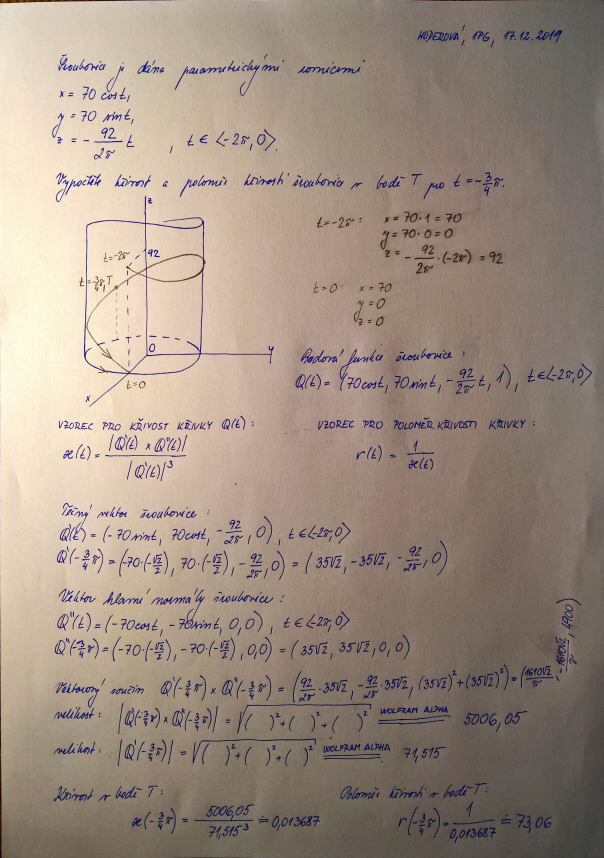 HODEROVÁ, 176, 17.12.2019
Šroubovice je dána parametrickými rovnicemi
x = 70 cos t,
y = 70 sin t,
z = - 92/2π t , t ∈ ⟨-2π, 0⟩.
Vypočtěte křivost a poloměr křivosti šroubovice v bodě T pro t = -3/4 π.
z
t=-2π
92
t=-3/4π, T
0
y
t=0
x
t=-2π: x = 70·1 = 70
y = 70·0 = 0
z = - 92/2π · (-2π) = 92
t=0: x = 70
y = 0
z = 0
Bodová funkce šroubovice:
Q(t) = (70cost, 70sint, - 92/2π t, 1), t∈⟨-2π,0⟩
VZOREC PRO KŘIVOST KŘIVKY Q(t):
æ(t) = |Q'(t) × Q''(t)| / |Q'(t)|³
VZOREC PRO POLOMĚR KŘIVOSTI KŘIVKY:
r(t) = 1/æ(t)
Tečný vektor šroubovice:
Q'(t) = (-70sint, 70cost, - 92/2π, 0), t∈⟨-2π,0⟩
Q'(-3/4 π) = (-70·(-√2/2), 70·(-√2/2), - 92/2π, 0) = (35√2, -35√2, - 92/2π, 0)
Vektor hlavní normály šroubovice:
Q''(t) = (-70cost, -70sint, 0, 0), t∈⟨-2π,0⟩
Q''(-3/4 π) = (-70·(-√2/2), -70·(-√2/2), 0,0) = (35√2, 35√2, 0, 0)
Vektorový součin Q'(-3/4 π) × Q''(-3/4 π) = (92/2π · 35√2, - 92/2π · 35√2, (35√2)² + (35√2)²) = (1610√2/π, - 1610√2/π, 4900)
velikost: |Q'(-3/4 π) × Q''(-3/4 π)| = √( )² + ( )² + ( )² WOLFRAM ALPHA 5006,05
velikost: |Q'(-3/4 π)| = √( )² + ( )² + ( )² WOLFRAM ALPHA 71,515
Křivost v bodě T:
æ(-3/4 π) = 5006,05 / 71,515³ ≐ 0,013687
Poloměr křivosti v bodě T:
r(-3/4 π) = 1 / 0,013687 ≐ 73,06